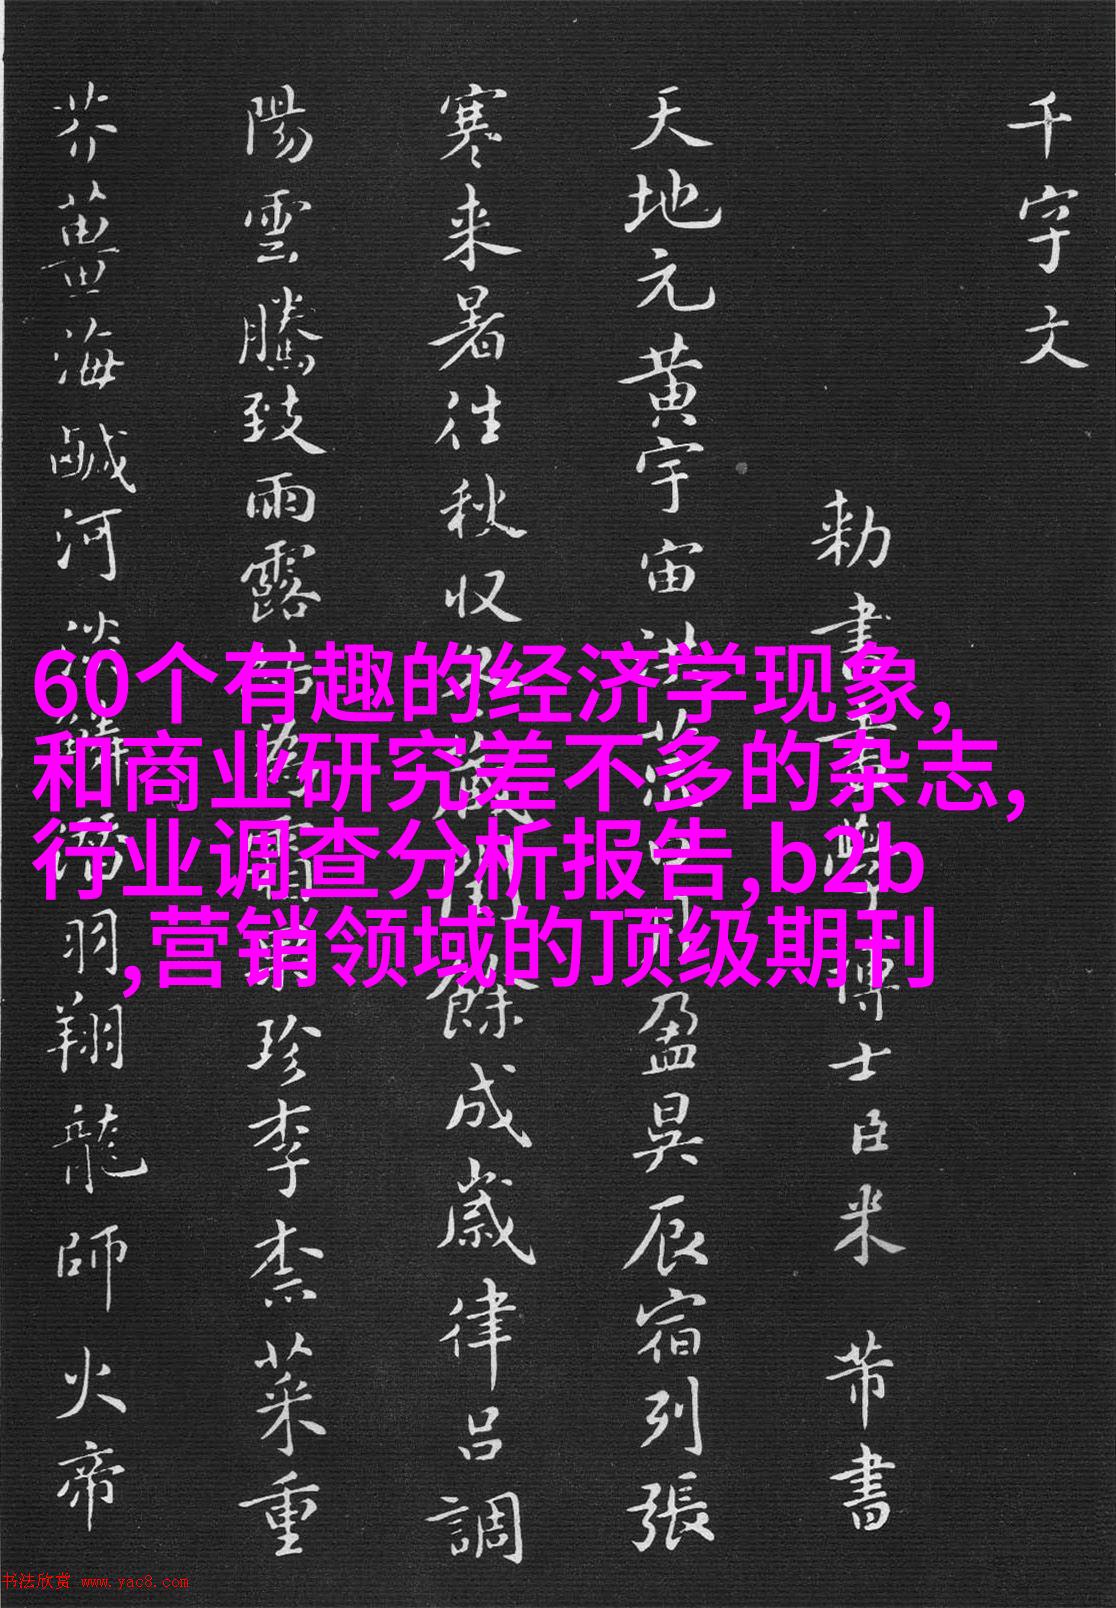 千字文
勅書博士臣米芾書
天地元黄宇宙洪荒日月盈昃辰宿列張
寒来暑往秋収冬蔵閏餘成歳律呂調
陽雲騰致雨露結為霜珍李柰菜重
芥薑海鹹河淡鱗潛羽翔龍師火帝
60个有趣的经济学现象,
和商业研究差不多的杂志,
行业调查分析报告,b2b
,营销领域的顶级期刊
书法欣赏 www.yac8.com